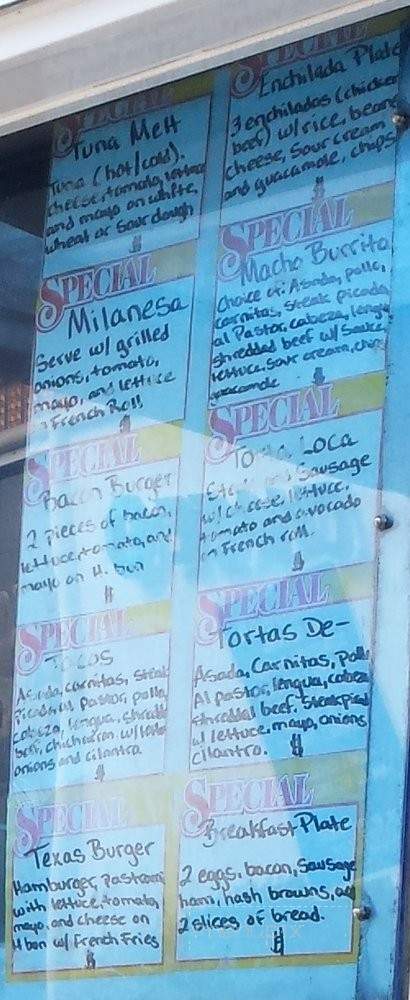 SPECIAL
Tuna Melt
Tuna (hot/cold).
cheese, tomato, lettuce
and mayo on white,
wheat or sourdough
$
SPECIAL
Milanesa
Serve w/ grilled
onions, tomato,
mayo, and lettuce
French Roll
$
SPECIAL
Bacon Burger
2 pieces of bacon,
lettuce, tomato, and
mayo on H. bun
$
SPECIAL
Tacos
Asada, carnitas, steak
Picado, al pastor, pollo,
cabeza, lengua, shredded
beef, chicharron w/
onions and cilantro
$
SPECIAL
Texas Burger
Hamburger, Pastrami
with lettuce, tomato,
mayo, and cheese on
H bun w/ French Fries
$
SPECIAL
Enchilada Plate
3 enchiladas (chicken
beef) w/ rice, beans
cheese, sour cream
and guacamole, chips
$
SPECIAL
Macho Burrito
Choice of: Asada, pollo,
carnitas, steak picado,
al Pastor, cabeza, lengua
shredded beef w/ sauce,
lettuce, sour cream, chips
guacamole
$
SPECIAL
Torta Loca
Steak and Sausage
w/ cheese, lettuce,
tomato and avocado
on French roll.
$
SPECIAL
Tortas De-
Asada, Carnitas, Pollo
Al pastor, lengua, cabeza
shredded beef, Steak picado
w/ lettuce, mayo, onions
cilantro.
$
SPECIAL
Breakfast Plate
2 eggs, bacon, Sausage
ham, hash browns, and
2 slices of bread.
$